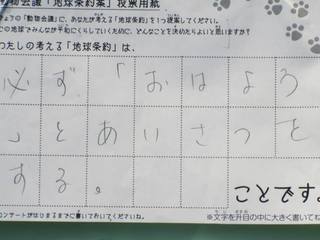 動物会議「地球条約案」投票用紙
きょうの「動物会議」に、あなたが考える「地球条約」を1つ提案してください。
この地球でみんなが平和にくらしていくために、どんなことを決めたらよいと思いますか?
わたしの考える「地球条約」は、
必ず「おはよう
」とあいさつを
する。
ことです。
コンサートがはじまるまでに書いておいてくださいね。
※文字を升目の中に大きく書いてね